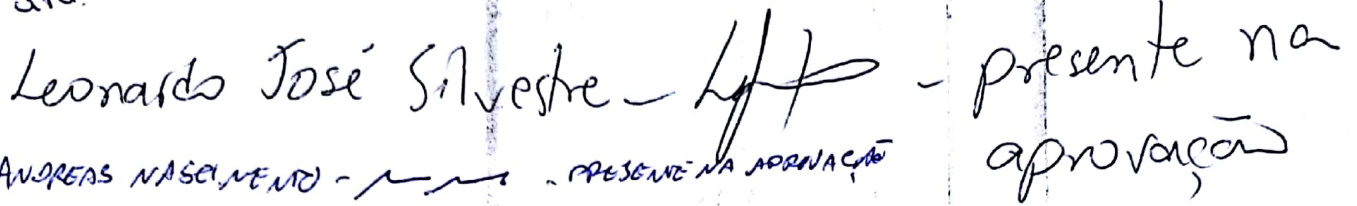 Leonardo José Silvestre - - presente na
aprovação
ANDREAS NASCIMENTO - - PRESENTE NA APROVAÇÃO